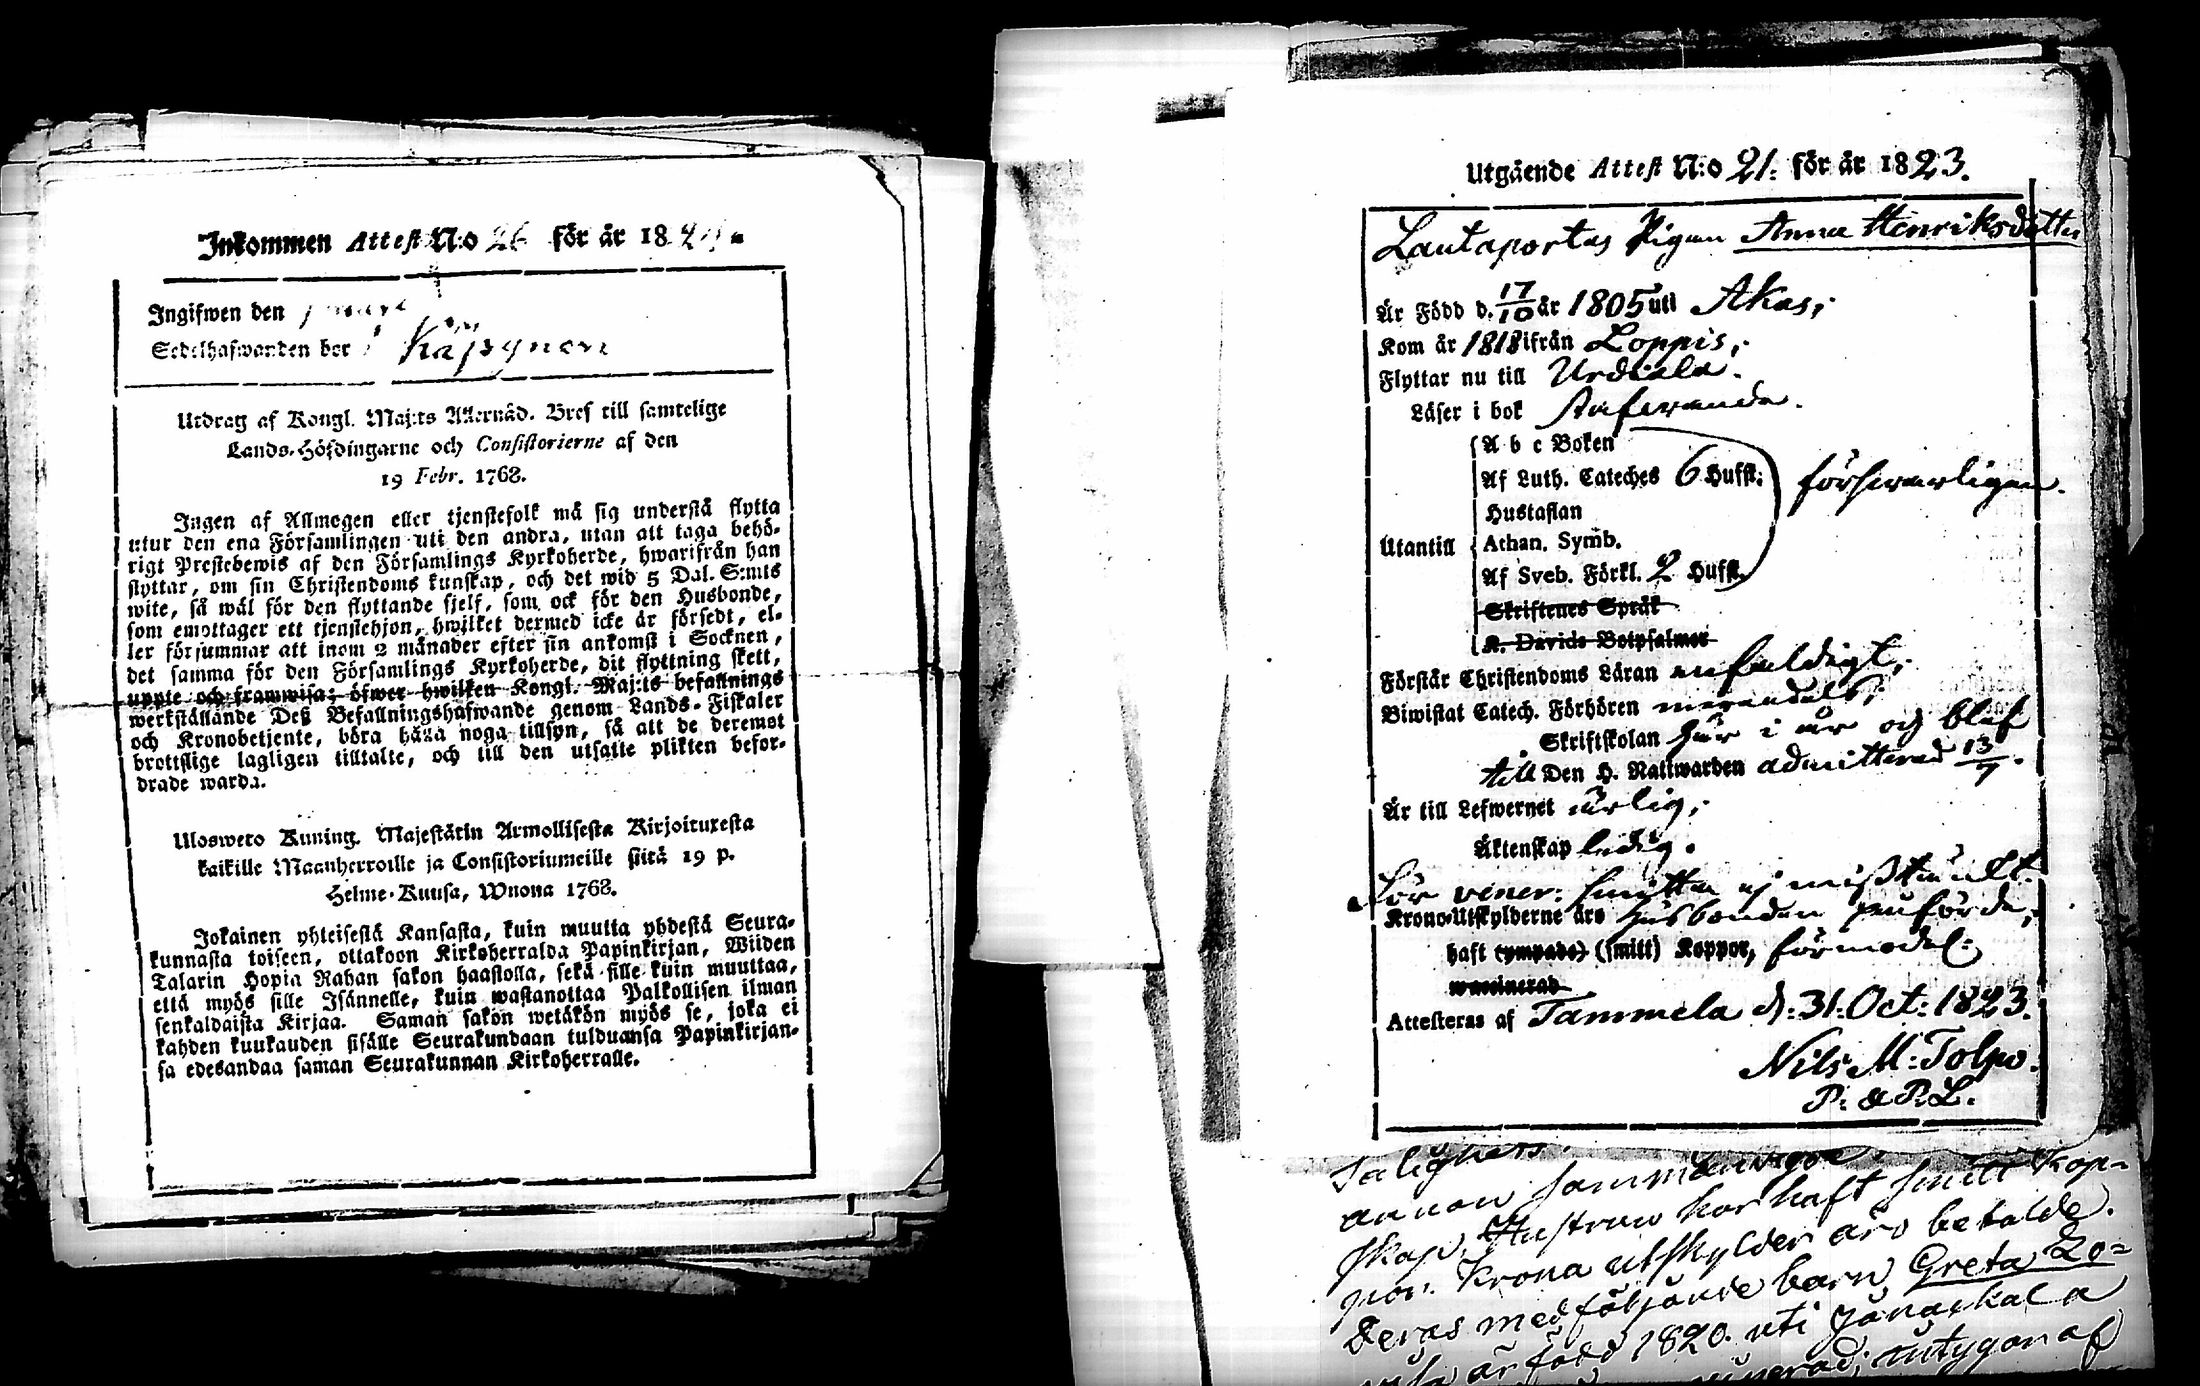 Inkommen Attest N:o 26 för år 18
Ingifwen den
Sedelhafwanden bor i Käpynen
Utdrag af Kongl. Maj:ts Allernåd. Bref till samtelige
Lands-Höfdingarne och Consistorierne af den
19 Febr. 1768.
Ingen af Allmogen eller tjenstefolk må sig understå flytta
utur den ena Församlingen uti den andra, utan att taga behö-
rigt Prestebewis af den Församlings Kyrkoherde, hwarifrån han
flyttar, om sin Christendoms kunskap, och det wid 5 Dal. S:mts
wite, så wäl för den flyttande sjelf, som ock för den Husbonde,
som emottager ett tjenstehjon, hwilket dermed icke är försedt, el-
ler försummar att inom 2 månader efter sin ankomst i Socknen,
det samma för den Församlings Kyrkoherde, dit flyttning skett,
uppte och framwisa; öfwer hwilken Kongl. Maj:ts befallnings
werkställande Deß Befallningshafwande genom Lands-Fiskaler
och Kronobetjente, böra hålla noga tillsyn, så att de deremot
brottslige lagligen tilltalte, och till den utsatte plikten befor-
drade warda.
Ulosweto Kuning. Majestätin Armollisesta Kirjoituxesta
kaikille Maanherroille ja Consistoriumeille siitä 19 p.
Helme-Kuusa, Wuona 1768.
Jokainen yhteisestä Kansasta, kuin muutta yhdestä Seura-
kunnasta toiseen, ottakoon Kirkoherralda Papinkirjan, Wiiden
Talarin Hopia Rahan sakon haastolla, sekä sille kuin muuttaa,
että myös sille Isännelle, kuin wastanottaa Palkollisen ilman
senkaldaista Kirjaa. Saman sakon wetäkön myös se, joka ei
kahden kuukauden sisälle Seurakundaan tulduansa Papinkirjan-
sa edesandaa saman Seurakunnan Kirkoherralle.
Utgående Attest N:o 21. för år 1823.
Lautaportas Pigan Anna Henriksdotter
Är Född d. 17/10 år 1805 uti Akas,
Kom år 1818 ifrån Loppis,
Flyttar nu till Urdiala.
Läser i bok stafwande.
A b c Boken
Af Luth. Cateches 6 Hufst: försvarligen.
Hustaflan
Utantill Athan. Symb.
Af Sveb. Förkl. 2 Hufst.
Skriftenes Språk
K. Davids Botpsalmer
Förstår Christendoms Läran enfaldigt,
Biwistat Catech. Förhören merendels,
Skriftskolan här i år og blef
till Den H. Nattwarden admitterad 13/7.
Är till Lefwernet ärlig,
Äktenskap ledig.
för vener: smitta ej mißtänkt.
Krono-Utskylderne äro Husbonden påförde,
haft (ympade) (smitt) Koppor, förmodel:
waccinerad
Attesteras af Tammela d. 31. Oct: 1823.
Nils M: Tolpo.
P. & P. L.
Salighets.
annan
skap. Hustrun har haft smitt Kop-
por. Krono utskylder äro betalde.
Deras medföljande barn Greta Lo-
visa är född 1820 uti Janackala
intygar af